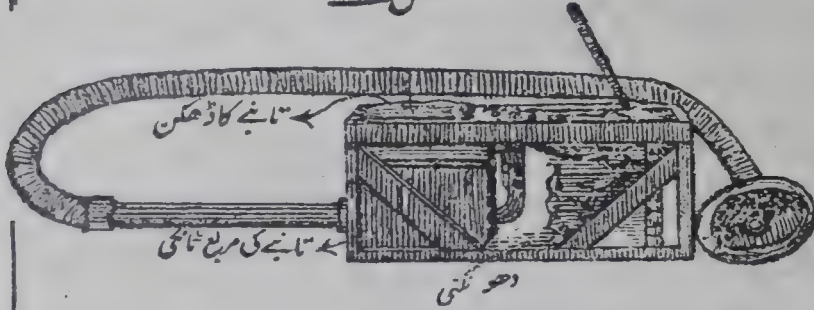 تانبے کا ڈھکن
تانبے کی مربع ٹانکی
دھونکنی